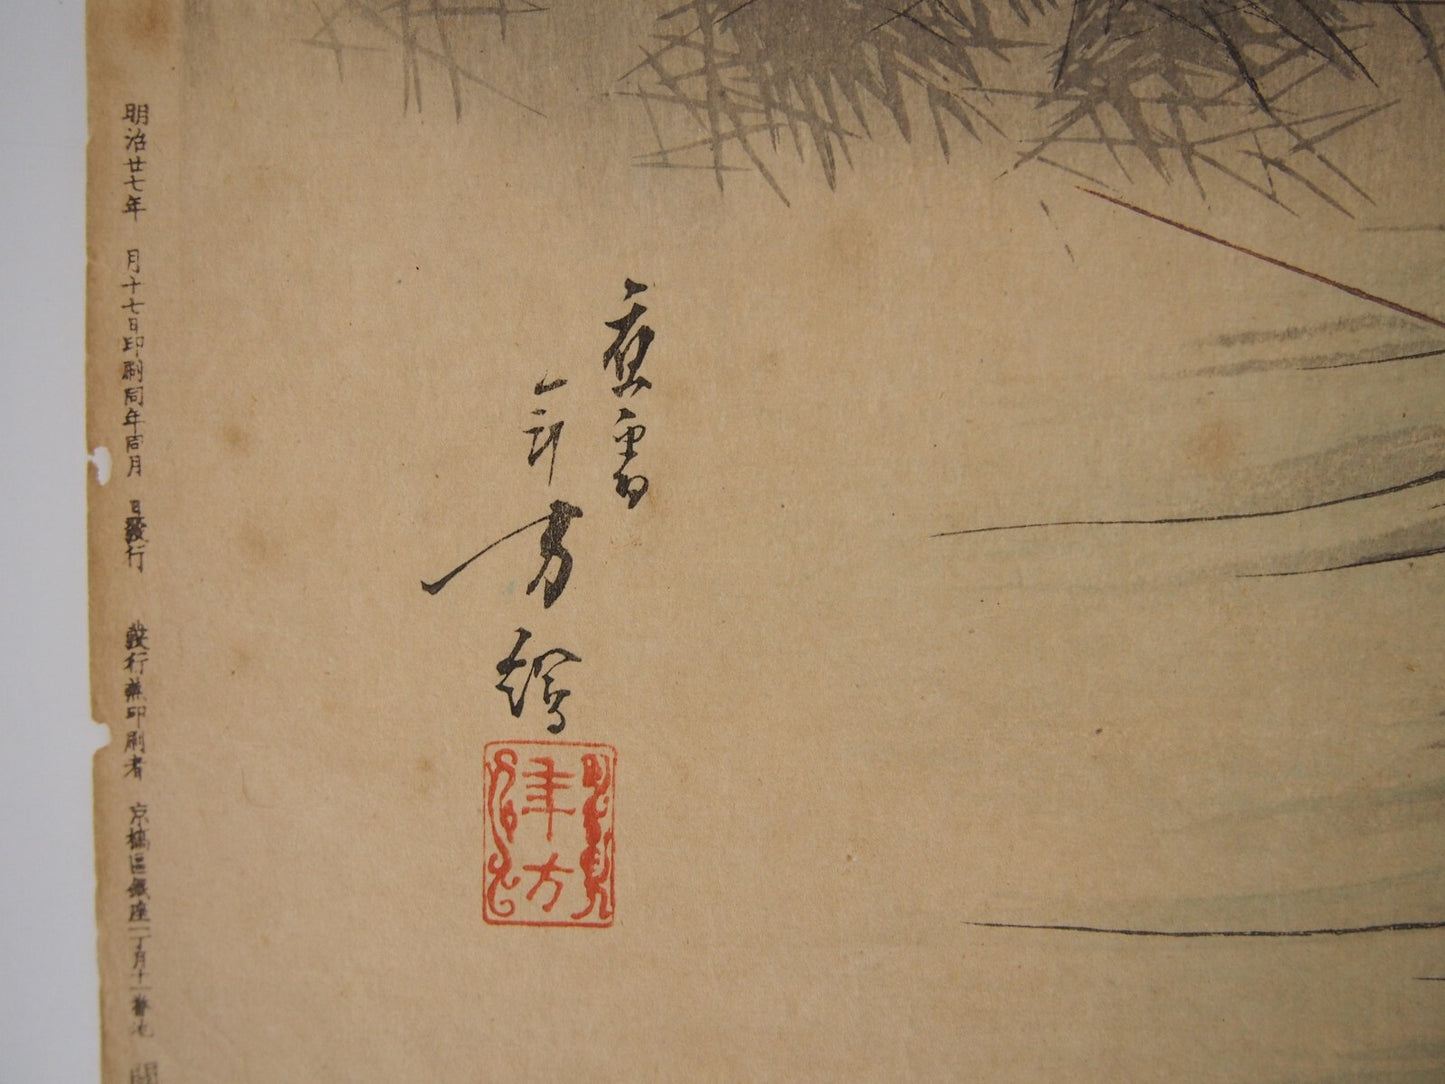 明治廿七年　月十七日印刷同年同月　日發行　發行兼印刷者　京橋區銀座一丁目十一番地　關
應需
年方繪
年方